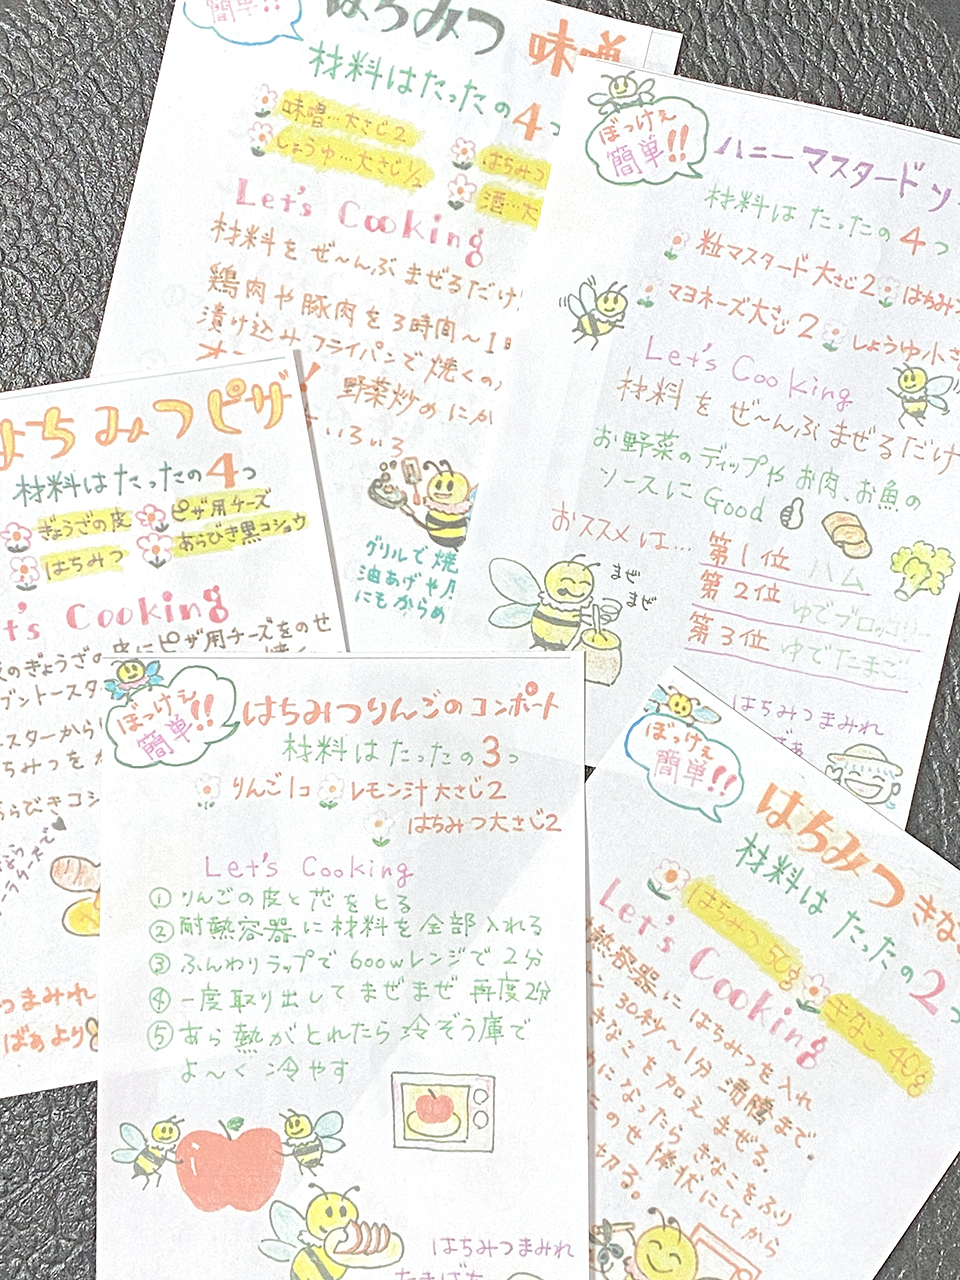 簡単!!
はちみつ 味噌
材料はたったの4つ
味噌…大さじ2
しょうゆ…大さじ1/2
はちみつ
酒…大
Let's Cooking
材料をぜ〜んぶまぜるだけ!
鶏肉や豚肉を3時間〜1日
漬け込みフライパンで焼くの
野菜炒めにか
いろいろ
グリルで焼
油あげや
にもからめ
ぼっけぇ
簡単!!
ハニーマスタードソ
材料はたったの4つ
粒マスタード大さじ2
はちみつ
マヨネーズ大さじ2
しょうゆ小さ
Let's Cooking
材料をぜ〜んぶまぜるだけ
お野菜のディップやお肉、お魚の
ソースにGood
おススメは…
第1位 ハム
第2位 ゆでブロッコリー
第3位 ゆでたまご
まぜ
まぜ
はちみつまみれ
はちみつピザ
材料はたったの4つ
ぎょうざの皮
ピザ用チーズ
はちみつ
あらびき黒コショウ
t's Cooking
のぎょうざの皮にピザ用チーズをのせ
ブントースタ
ースターから
ちみつを
らびきコシ
つまみれ
ばぁより
ぼっけぇ
簡単!!
はちみつりんごのコンポート
材料はたったの3つ
りんご1コ
レモン汁大さじ2
はちみつ大さじ2
Let's Cooking
①りんごの皮と芯をとる
②耐熱容器に材料を全部入れる
③ふんわりラップで600wレンジで2分
④一度取り出してまぜまぜ 再度2分
⑤あら熱がとれたら冷ぞう庫で
よ〜く冷やす
はちみつまみれ
たきばぁ
ぼっけぇ
簡単!!
はちみつきなこ
材料はたったの2つ
はちみつ50g
きなこ40g
Let's Cooking
熱容器にはちみつを入れ
30秒〜1分沸騰まで。
きなこを加えまぜる。
になったらきなこをふり
のせ棒状にしてから
切る。